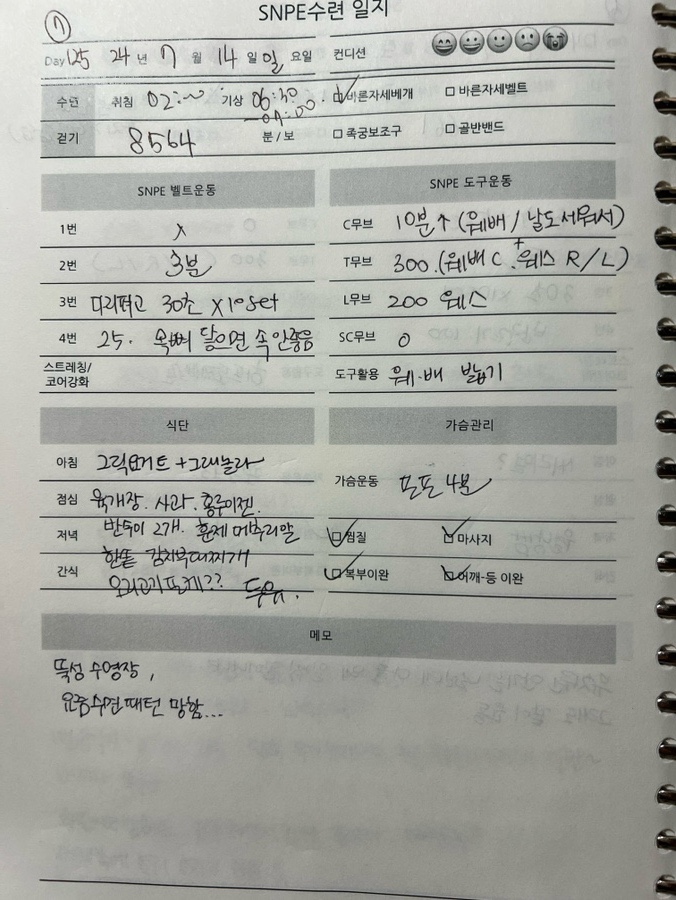 SNPE수련 일지
7
Day 125 24 년 7 월 14 일 일 요일 컨디션
수면 취침 02:~ 기상 06:30 ☑ 바른자세베개 □ 바른자세벨트
걷기 8564 분 / 보 □ 족궁보조구 □ 골반밴드
SNPE 벨트운동
1번 X
2번 3분
3번 다리펴고 30초 X10set
4번 25. 목뼈 닿으면 속 안좋음
스트레칭/
코어강화
SNPE 도구운동
C무브 10분↑ (웨베 / 날도 세워서)
T무브 300.(웨베 C. + 웨스 R / L)
L무브 200 웨스
SC무브 0
도구활용 웨.베 밟기
식단
아침 그릭요거트 + 그래놀라
점심 육개장. 사과.
저녁 반숙이 2개. 훈제 메추리알
한솥 김치부대찌개
간식 오리고기포케?? 두유.
가슴관리
가슴운동 4분
☑ 찜질 ☑ 마사지
☑ 복부이완 ☑ 어깨-등 이완
메모
뚝섬 수영장,
요즘 수면패턴 망함...